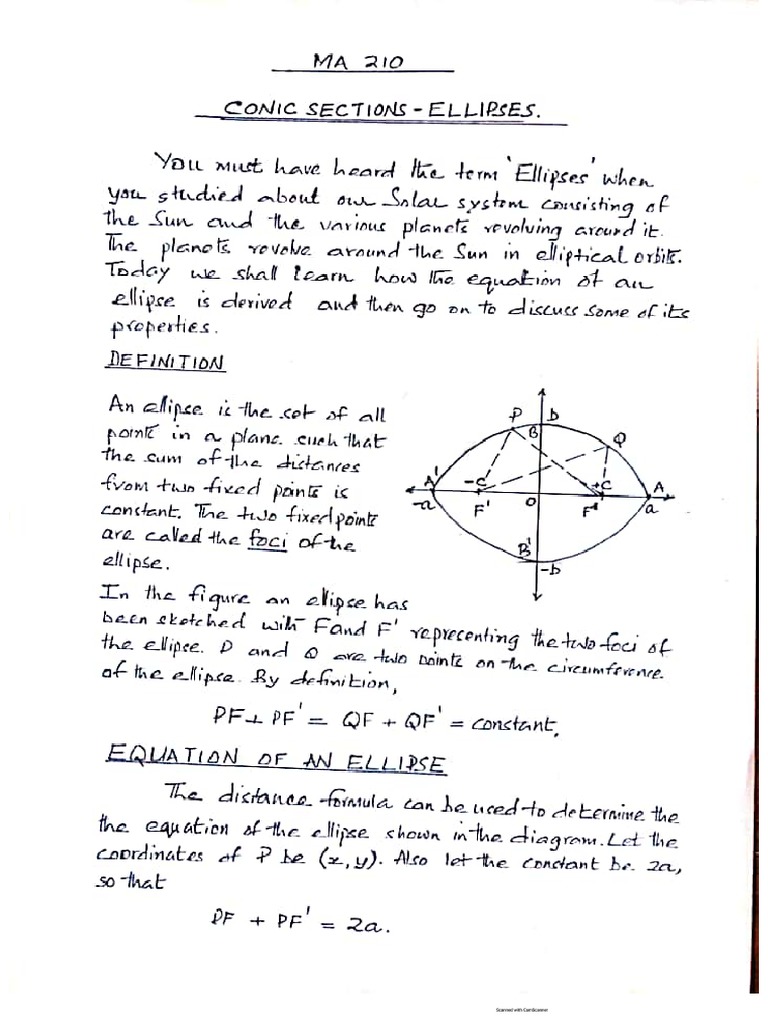 MA 210
CONIC SECTIONS - ELLIPSES.
You must have heard the term 'Ellipses' when
you studied about our Solar system consisting of
the Sun and the various planets revolving around it.
The planets revolve around the Sun in elliptical orbits.
Today we shall learn how the equation of an
ellipse is derived and then go on to discuss some of its
properties.
DEFINITION
An ellipse is the set of all
points in a plane such that
the sum of the distances
from two fixed points is
constant. The two fixed points
are called the foci of the
ellipse.
P
b
B
Q
A'
-C
+C
A
-a
F'
O
F
a
B'
-b
In the figure an ellipse has
been sketched with F and F' representing the two foci of
the ellipse. P and Q are two points on the circumference
of the ellipse. By definition,
PF + PF' = QF + QF' = constant.
EQUATION OF AN ELLIPSE
The distance formula can be used to determine the
the equation of the ellipse shown in the diagram. Let the
coordinates of P be (x,y). Also let the constant be 2a,
so that
PF + PF' = 2a.
Scanned with CamScanner